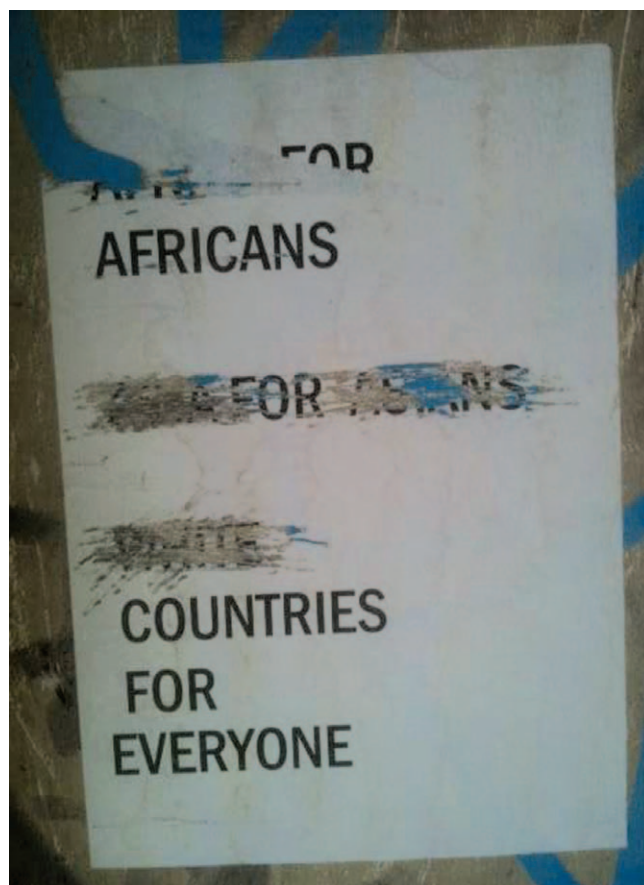 FOR
AFRICANS
FOR ASIANS
COUNTRIES
FOR
EVERYONE